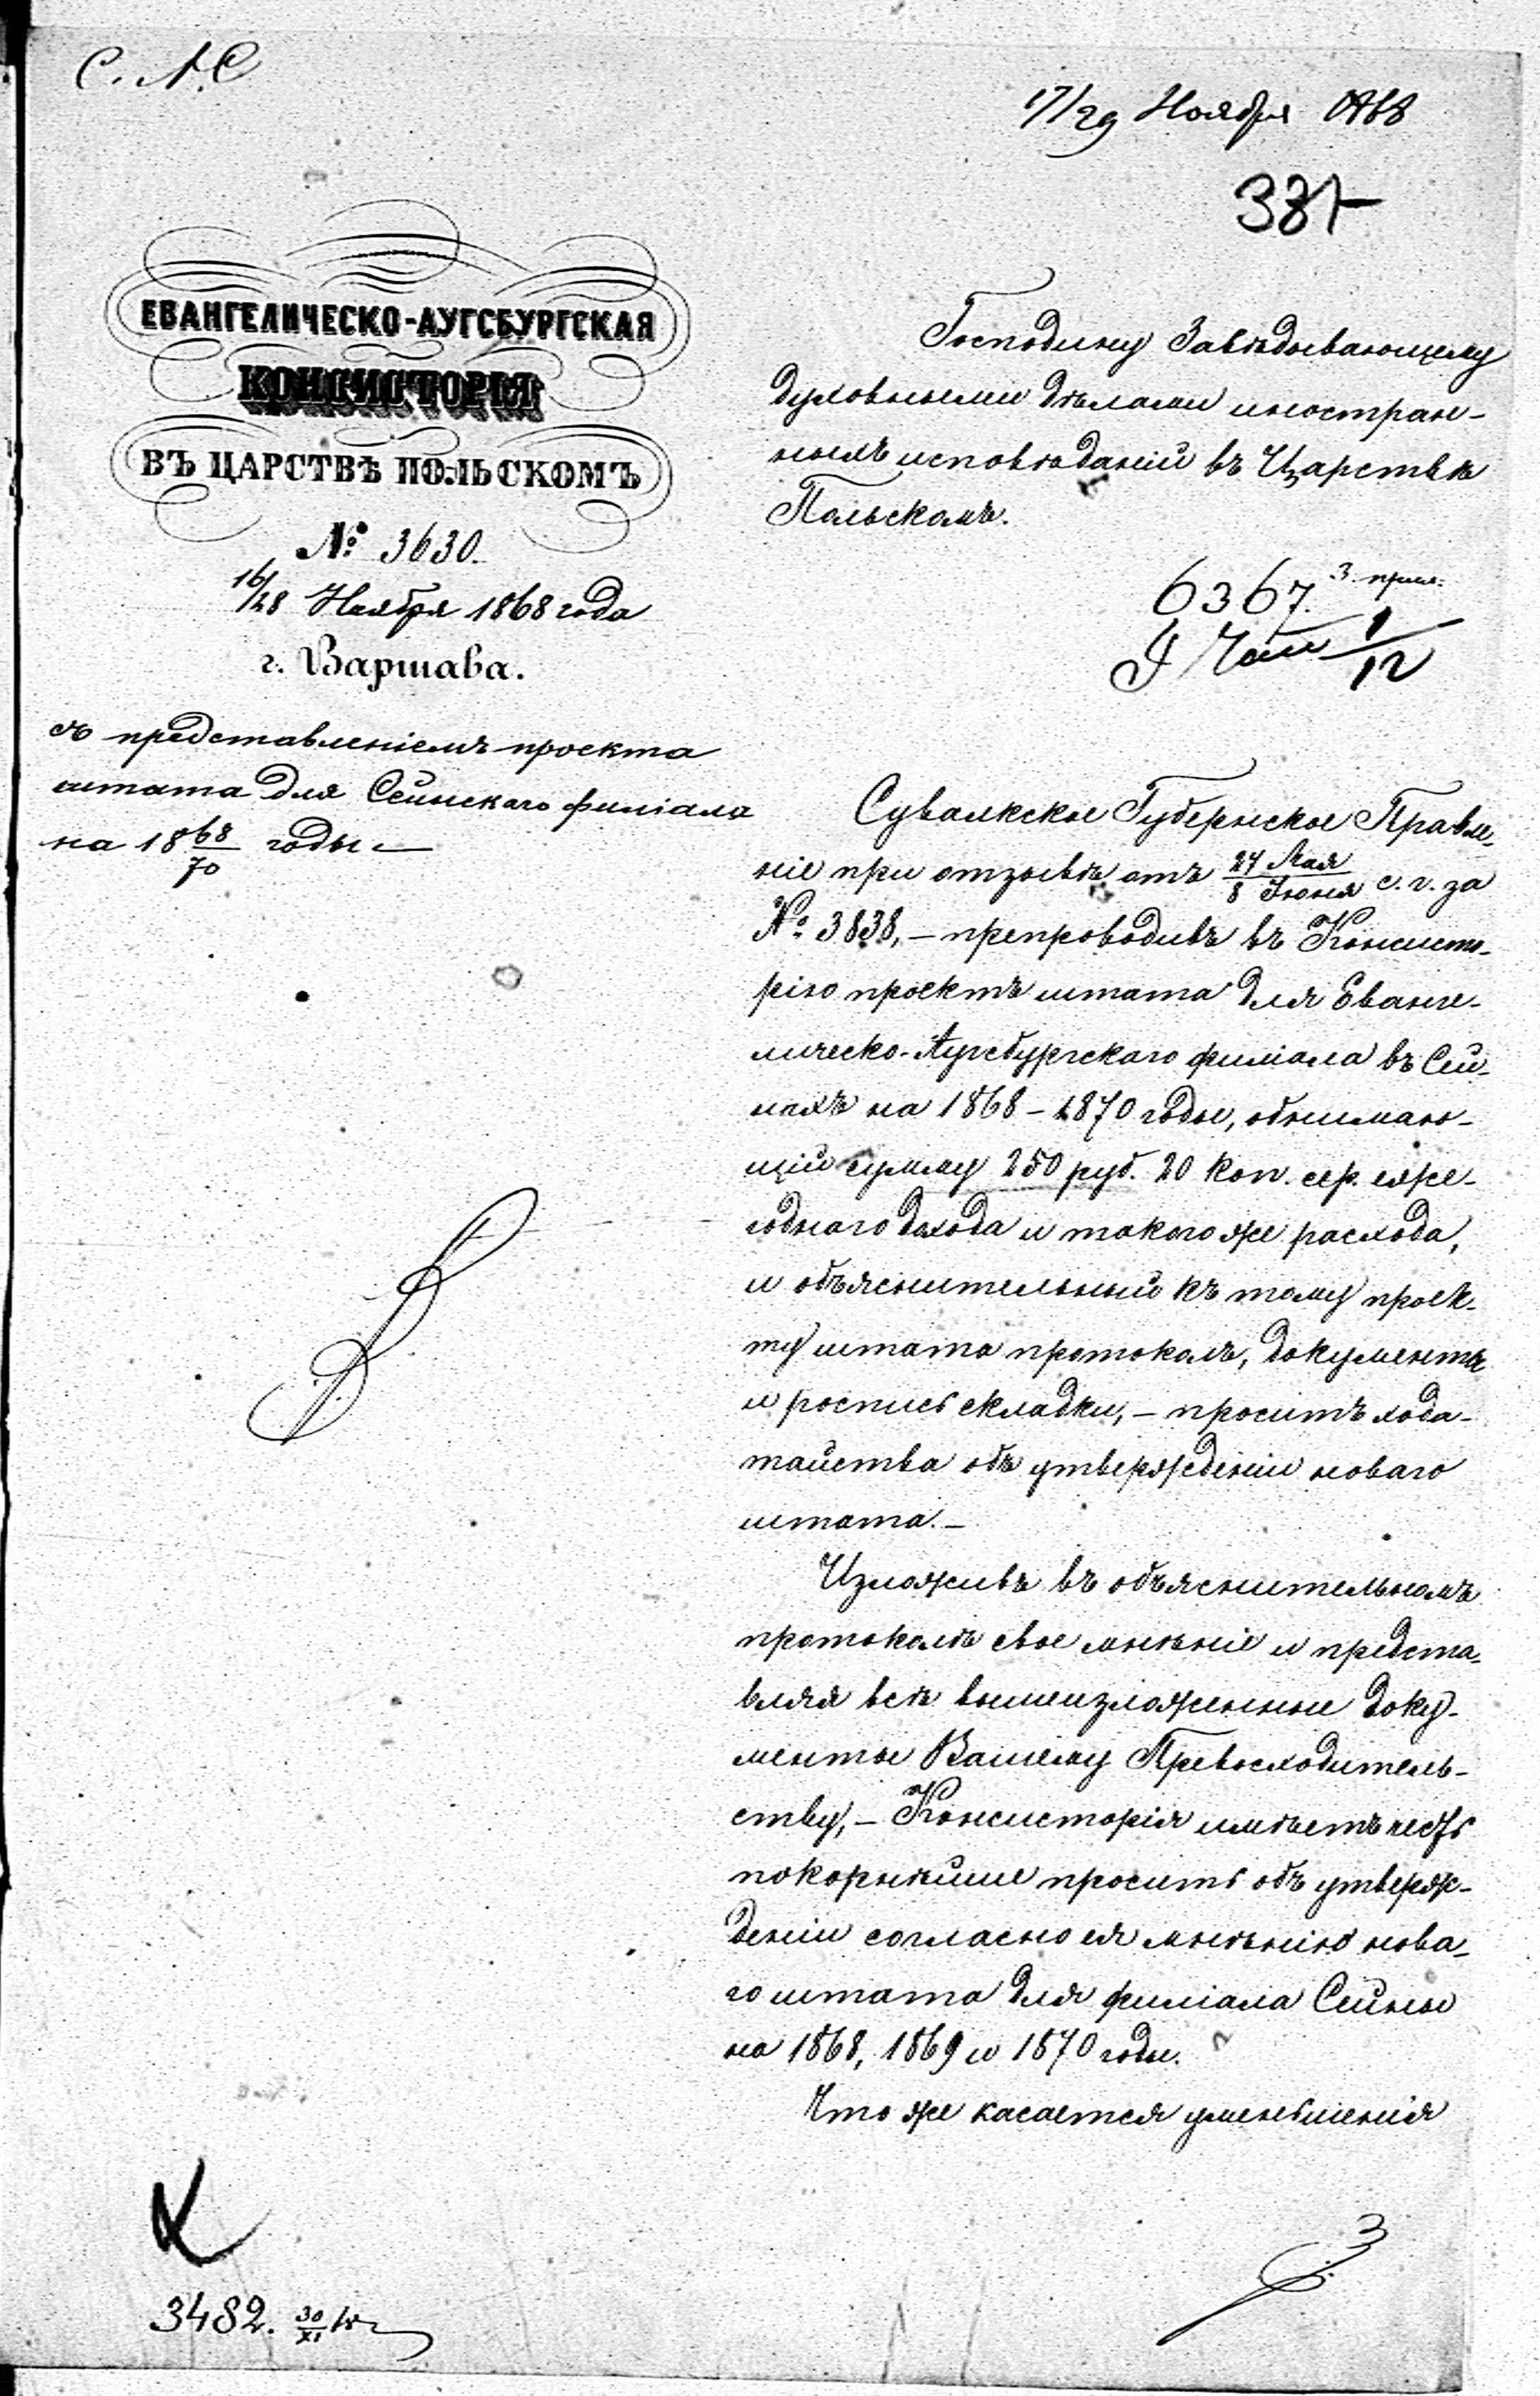 С. А. С
17/29 Ноября 1868
ЕВАНГЕЛИЧЕСКО-АУГСБУРГСКАЯ
КОНСИСТОРІЯ
ВЪ ЦАРСТВѢ ПОЛЬСКОМЪ
№ 3630.
16/28 Ноября 1868 года
г. Варшава.
съ представленіемъ проекта
штата для Сейнскаго филіала
на 18 68/70 годы —
Господину Завѣдывающему
духовными дѣлами иностран-
ныхъ исповѣданій въ Царствѣ
Польскомъ.
6367. 3 прил.
1/12
Сувалкское Губернское Правле-
ніе при отзывѣ отъ 27 Мая/8 Іюня с. г. за
№ 3838, — препроводивъ въ Консисто-
рію проектъ штата для Еванге-
лическо-Аугсбургскаго филіала въ Сей-
нахъ на 1868 – 1870 годы, обнимаю-
щій сумму 250 руб. 20 коп. сер. еже-
годнаго дохода и такого же расхода,
и объяснительный къ тому проек-
ту штата протоколъ, документъ
и роспись складки, — проситъ хода-
тайства объ утвержденіи новаго
штата. —
Изложивъ въ объяснительномъ
протоколѣ свое мнѣніе и предста-
вляя всѣ вышеизложенные доку-
менты Вашему Превосходитель-
ству, — Консисторія имѣетъ честь
покорнѣйше просить объ утверж-
деніи согласно ея мнѣнію нова-
го штата для филіала Сейны
на 1868, 1869 и 1870 годы.
Что же касается уменьшенія
3482. 30/XI